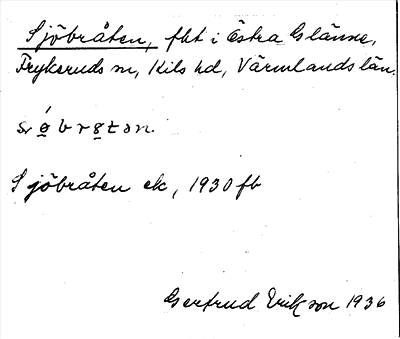 Sjöbråten, fht i Östra Glänne,
Frykeruds sn, Kils hd, Värmlands län.
Sjöbråten ek, 1930 fb
Gertrud Erikson 1936